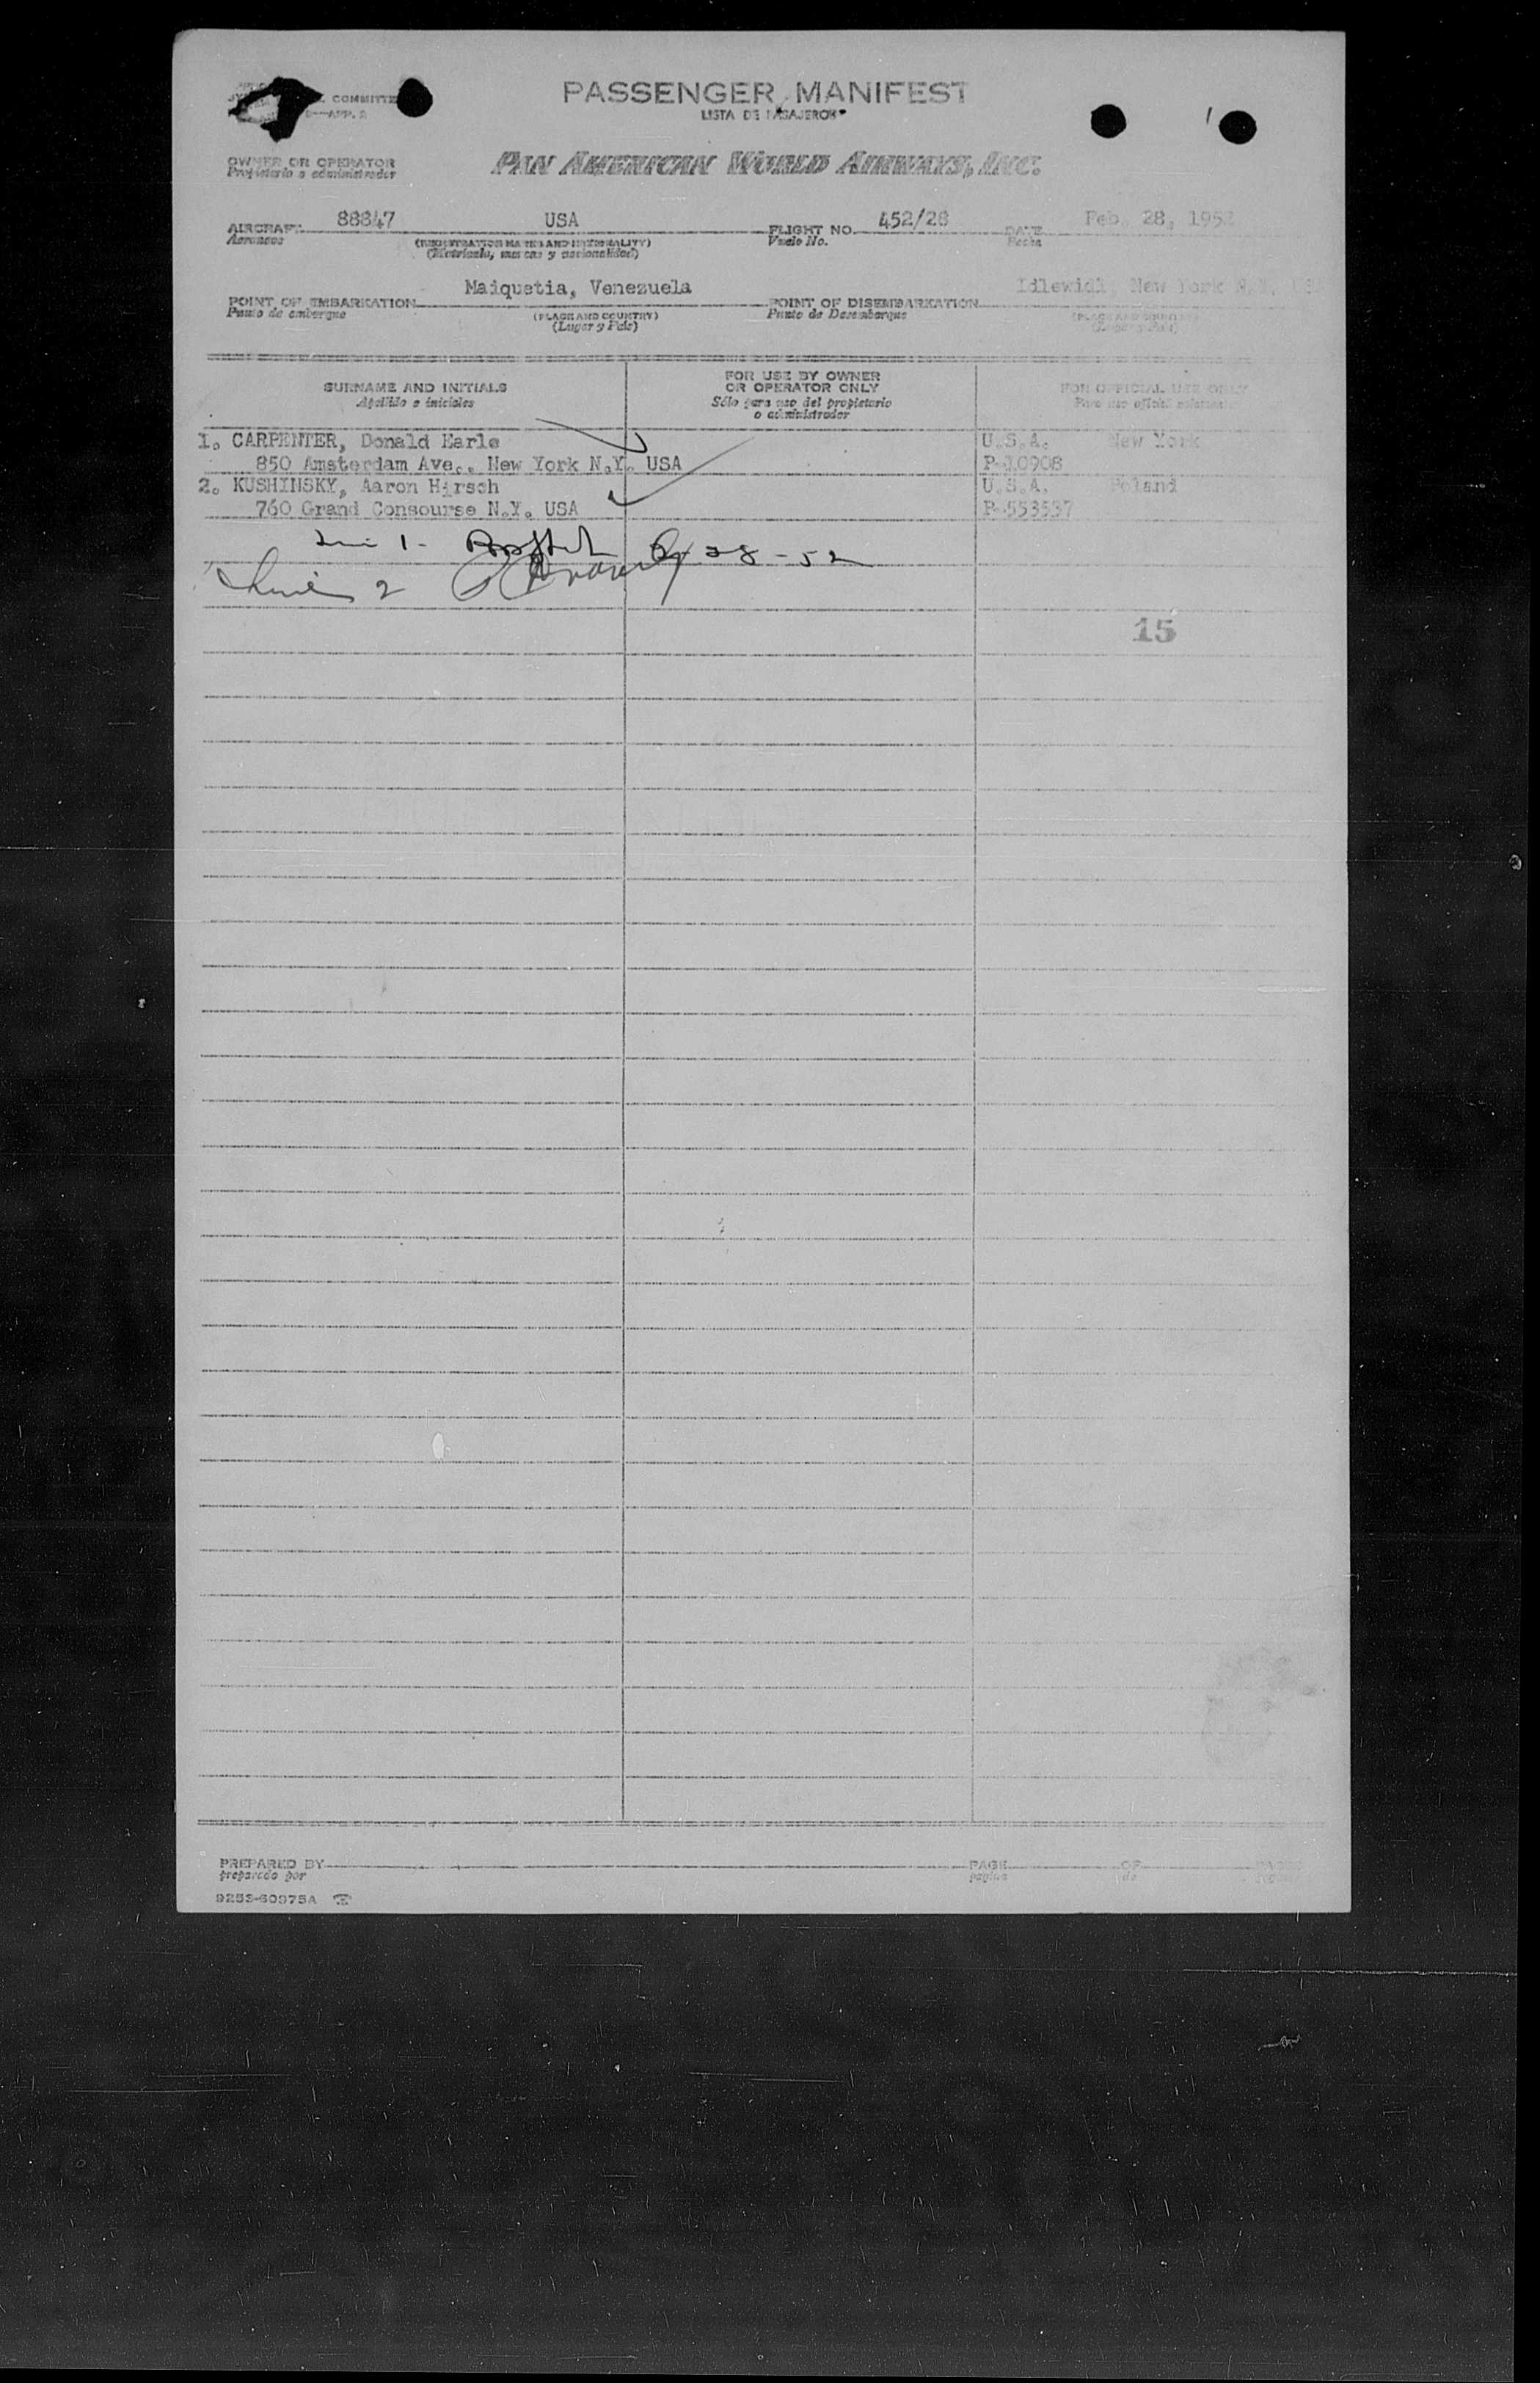 COMMITTE
—APP. 2
PASSENGER MANIFEST
LISTA DE PASAJEROS
OWNER OR OPERATOR
Propietario o administrador
PAN AMERICAN WORLD AIRWAYS, INC.
AIRCRAFT 88847 USA FLIGHT NO. 452/28 DATE Feb. 28, 195
Aeronave (REGISTRATION MARKS AND NATIONALITY) Vuelo No. Fecha
(Matrícula, marcas y nacionalidad)
POINT OF EMBARKATION Maiquetia, Venezuela POINT OF DISEMBARKATION Idlewidl, New York N.Y.
Punto de embarque (PLACE AND COUNTRY) Punto de Desembarque (PLACE AND COUNTRY)
(Lugar y País) (Lugar y País)
SURNAME AND INITIALS FOR USE BY OWNER OR OPERATOR ONLY FOR OFFICIAL USE ONLY
Apellido e iniciales Sólo para uso del propietario o administrador Para uso oficial
1. CARPENTER, Donald Earle U.S.A. New York
850 Amsterdam Ave., New York N.Y. USA
2. KUSHINSKY, Aaron Hirsch U.S.A. Poland
760 Grand Consourse N.Y. USA P-553537
1 - 28-52
Line 2
15
PREPARED BY PAGE OF
preparado por página de
9253-60975A